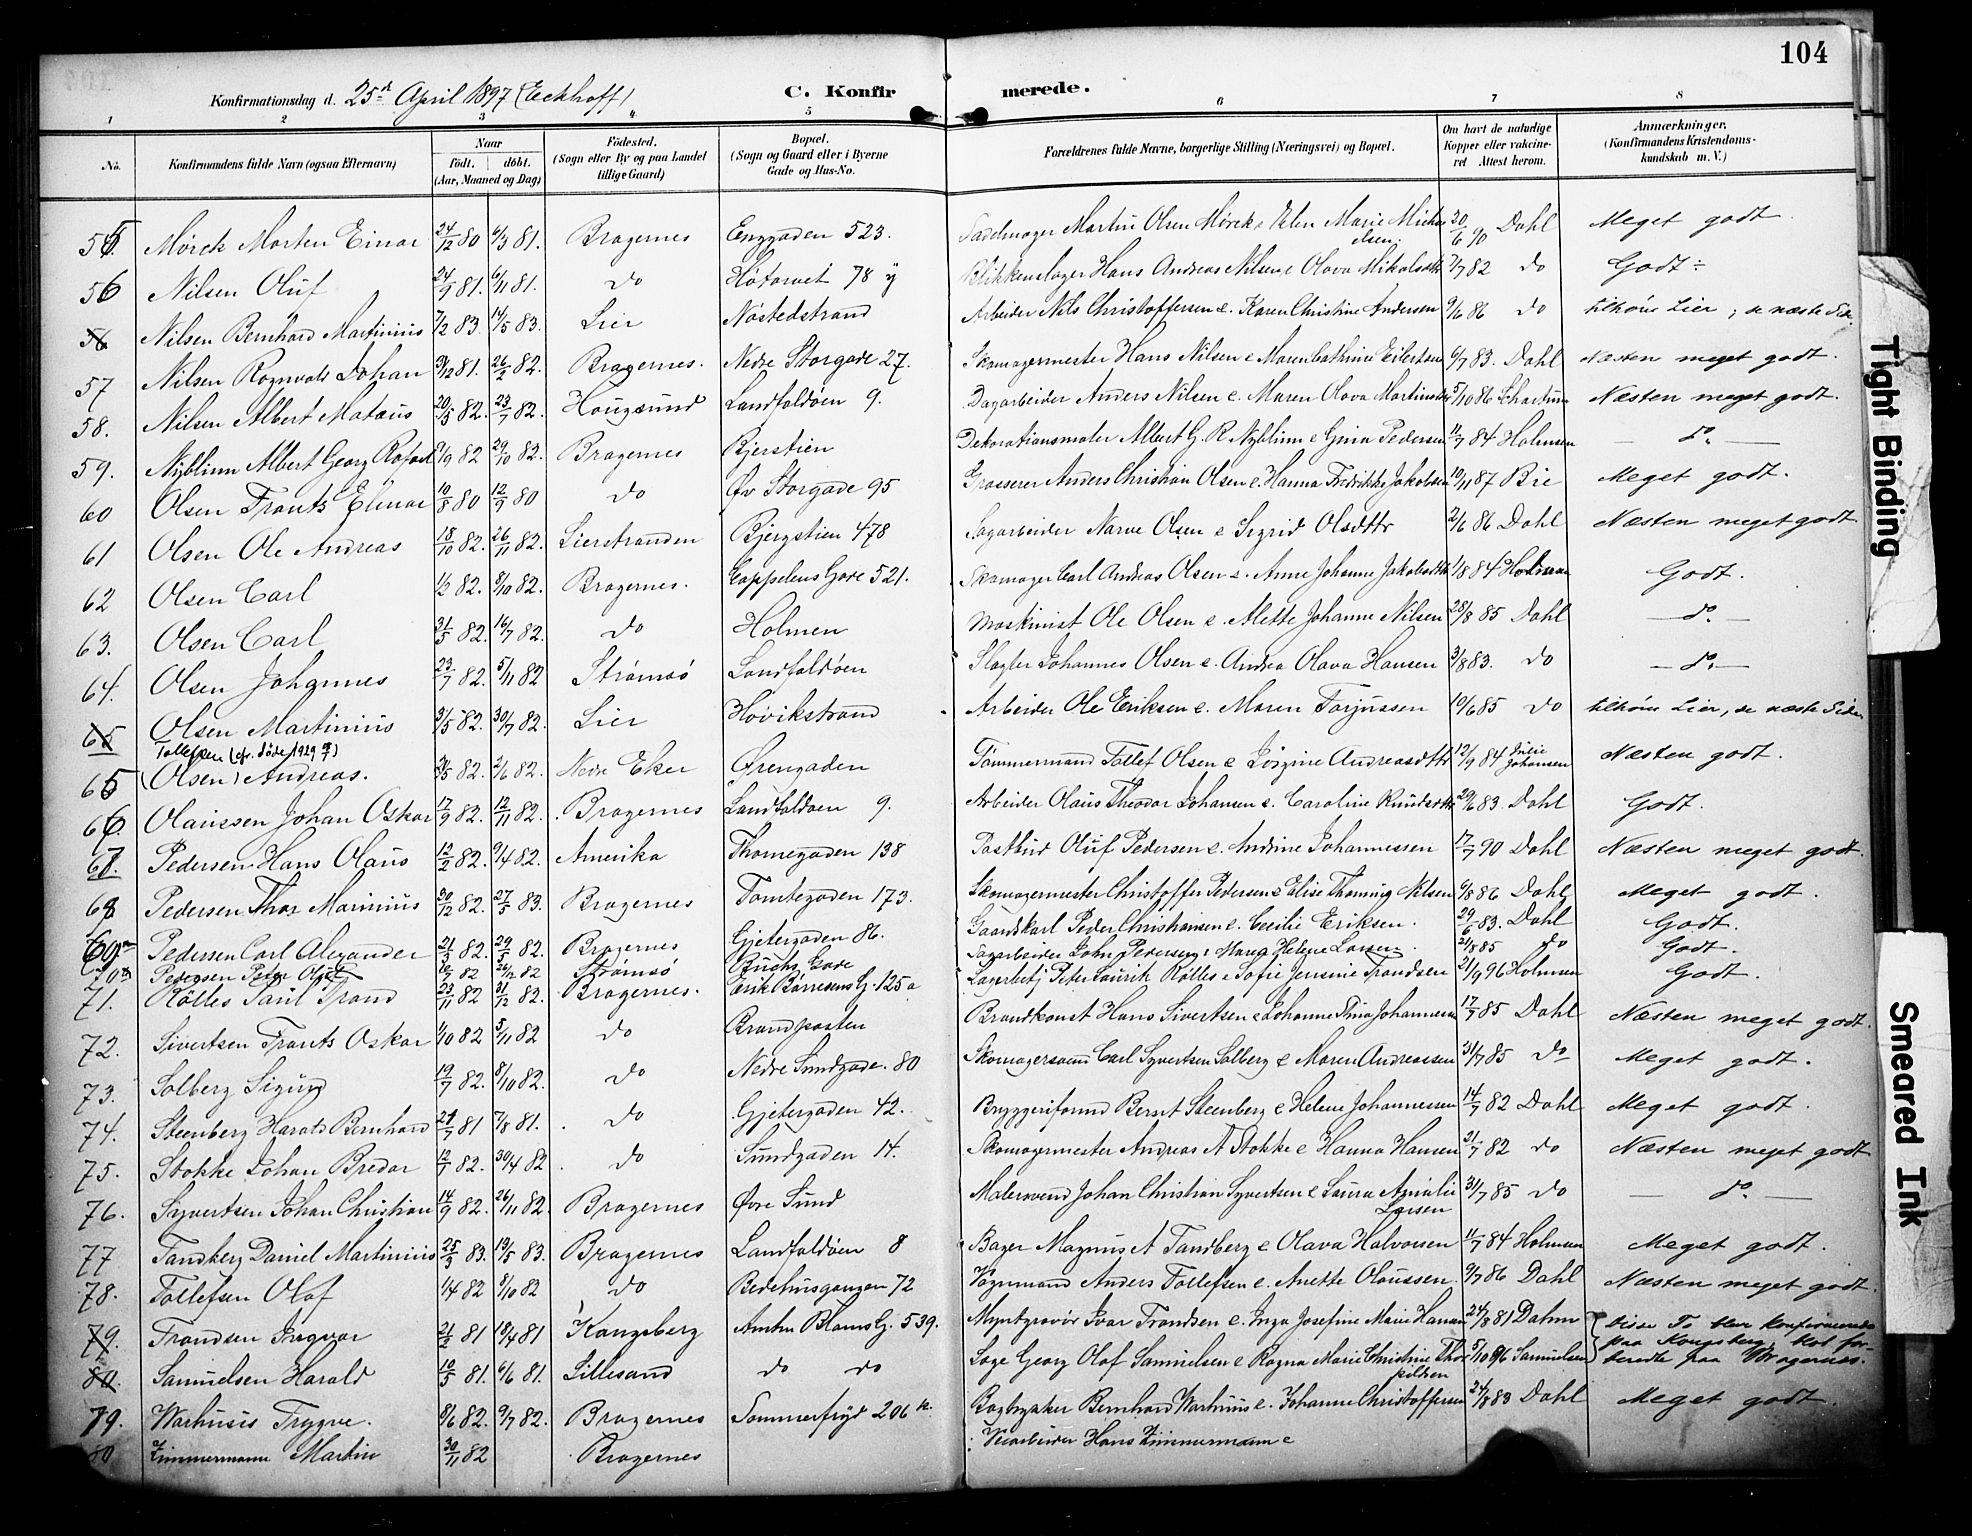 104
Konfirmationsdag d. 25de April 1897 (Eckhoff)
C. Konfirmerede.
1 2 3 4 5 6 7 8
No. Konfirmandens fulde Navn (ogsaa Efternavn) Naar födt. döbt. (Aar, Maaned og Dag) Födested. (Sogn eller By og paa Landet tillige Gaard) Bopæl. (Sogn og Gaard eller i Byerne Gade og Hus-No. Forældrenes fulde Navne, borgerlige Stilling (Næringsvei) og Bopæl. Om havt de naturlige Kopper eller vakcineret Attest herom. Anmærkninger. (Konfirmandens Kristendomskundskab m. V.)
55 Mörch Morten Einar 24/12 80 6/3 81. Bragernes Enggaden 523. Sadelmager Martin Olsen Mörck e Elen Marie Michaelsen. 20/6 90 Dahl Meget godt.
56 Nilsen Oluf 24/9 81. 6/11 81. do Høtorvet 78 y Blikkenslager Hans Andreas Nilsen e Olava Mikolsdtr 7/7 82 do Godt ÷
56 Nilsen Bernhard Martinius 7/2 83. 14/5 83. Lier Nöstedstrand Arbeider Nils Christoffersen e. Karen Christine Andersen 9/6 86 do tilhører Lier; se næste Side.
57 Nilsen Ragnvald Johan 31/12 81. 26/2 82. Bragernes. Nedre Storgade 27. Skomagermester Hans Nilsen e Maren Cathrine Eilertsen 6/7 83. Dahl Næsten meget godt.
58. Nilsen Albert Matæus 20/5 82. 23/7 82. Hougsund Landfaldöen 9. Dagarbeider Anders Nilsen e. Maren Olava Martinsdtr 5/10 86 Schartum Næsten meget godt.
59. Nyblinn Albert Georg Rafael 9/9 82 29/10 82. Bragernes Bjerstien Dekorationsmaler Albert G. R. Nyblinn e Gina Pedersen 11/7 84 Holmsen — do —
60 Olsen Frants Einar 10/8 80 12/9 80 do Øv Storgade 95 Grosserer Anders Christian Olsen e. Hanna Fredrikke Jakobsen 10/11 87 Bie Meget godt.
61 Olsen Ole Andreas 18/10 82. 26/11 82. Lierstranden Bjergstien 478 Sagarbeider Narve Olsen e Sigrid Olsdtr 2/6 86 Dahl Næsten meget godt
62 Olsen Carl 1/2 82. 8/10 82. Bragernes. Cappelens Gade 521. Skomager Carl Andreas Olsen e. Anne Johanne Jakobsdtr 1/8 84 Holmsen Godt.
63. Olsen Carl 31/5 82. 16/7 82. do Holmen Maskinist Ole Olsen e. Alette Johanne Nilsen 28/8 85 Dahl — do —
64. Olsen Johannes 23/7 82. 5/11 82 Strömsö Landfaldöen Slagter Johannes Olsen e. Andrea Olava Hansen 3/8 83. do — do —
65 Olsen Martinius 31/5 82. 30/7 82. Lier Hövikstrand Arbeider Ole Eriksen e. Maren Torjussen 19/6 85 do tilhører Lier, se næste Side
Tollefsen (cfr. döde 1929)
65 (Olsen) Andreas. 82. 2/6 82. Nedre Eker Örengaden Tømmermand Tollef Olsen e Jörgine Andreasdtr 12/9 84 Julie Johansen Næsten godt.
66. Olaussen Johan Oskar 17/9 82. 12/11 82. Bragernes Landfaldöen 9. Arbeider Olaus Theodor Johansen e. Caroline Knudsdtr 29/6 83. Dahl Godt.
67. Pedersen Hans Olaus 12/2 82. 9/4 82. Amerika Thornegaden 138 Postbud Oluf Pedersen e. Andrine Johannessen 17/7 90 Dahl Næsten meget godt.
68 Pedersen Thor Marinius 30/12 82. 27/5 83. Bragernes Tomtegaden 173. Skomagermester Christoffer Pedersen e Elise Thonnig Nilsen 6/8 86 Dahl Meget godt.
69 Pedersen Carl Alexander 21/3 82. 29/5 82. Bragernes Gjetergaden 86. Gaardskarl Peder Christiansen e. Cecilie Eriksen. 29/6 83. Dahl Godt.
70 Pedersen Peter Olaf 82 26/12 82 Strömsö Buchs Gade Sagarbeider John Pedersen e Maria Helene Larsen. 21/8 85 do Godt.
71. Rölles Paul Trond 23/11 82 31/12 82. Bragernes. Erik Börresens G. 125 a Lagerbetj Peter Laurik Rölles e Sofie Jensine Trondsen 21/9 96 Holmsen Godt.
72. Sivertsen Frants Oskar 1/10 82 5/11 82 do Brandposten Brandkonst Hans Sivertsen e Johanne Thina Johannesen 17/7 85 Dahl Næsten meget godt.
73. Solberg Sigurd 19/7 82. 8/10 82. do Nedre Sundgade. 80 Skomagersvend Carl Syvertsen Solberg e Maren Andreassen 31/7 85 do Meget godt.
74. Steenberg Harald Bernhard 24/7 81 7/8 81. do Gjetergaden 42. Bryggeriformd Bernt Steenberg e Helene Johannessen 14/7 82 Dahl Meget godt.
75. Stokke Johan Bredar 12/1 82. 30/4 82 do Sundgaden 14. Skomagermester Andreas A Stokke e Hanna Hansen 21/7 82 do Næsten meget godt
76. Syvertsen Johan Christian 14/9 82. 26/11 82. Bragernes Øvre Sund Malersvend Johan Christian Syvertsen e Laura Amalie Larsen 31/7 85 do — do —
77 Tandberg Daniel Martinius 25/3 83. 13/5 83. Bragernes Landfaldöen 8 Bager Magnus A Tandberg e Olava Halvorsen 11/7 84 Holmsen Meget godt.
78. Tollefsen Olaf 1/4 82 8/10 82 do Bedehusgangen 72 Vognmand Anders Tollefsen e. Anette Olaussen. 9/7 86 Dahl Næsten meget godt.
79. Trondsen Ingvar 21/2 81 18/4 81 Kongsberg Anton Bloms G. 539. Myntgravör Ivar Trondsen e Inga Josefine Marie Hansen 24/8 81 Dahm { disse To blev konfirmerede paa Kongsberg,
80. Samuelsen Harald 10/5 81. 6/6 81. Lillesand do do Løge Georg Olaf Samuelsen e Ragna Marie Christine Thorkildsen 5/10 86 Samuelsen kol forberedte paa Bragernes.
79. Warhuus Trygve. 8/6 82. 9/7 82. Bragernes Sommerfryd 206 k. Bogtrykker Bernhard Warhuus e. Johanne Christoffersen 24/8 83 Dahl Meget godt.
80 Zimmermann Martin 30/11 82 Bragernes Veiarbeider Hans Zimmermann e
Tight Binding
Smeared Ink